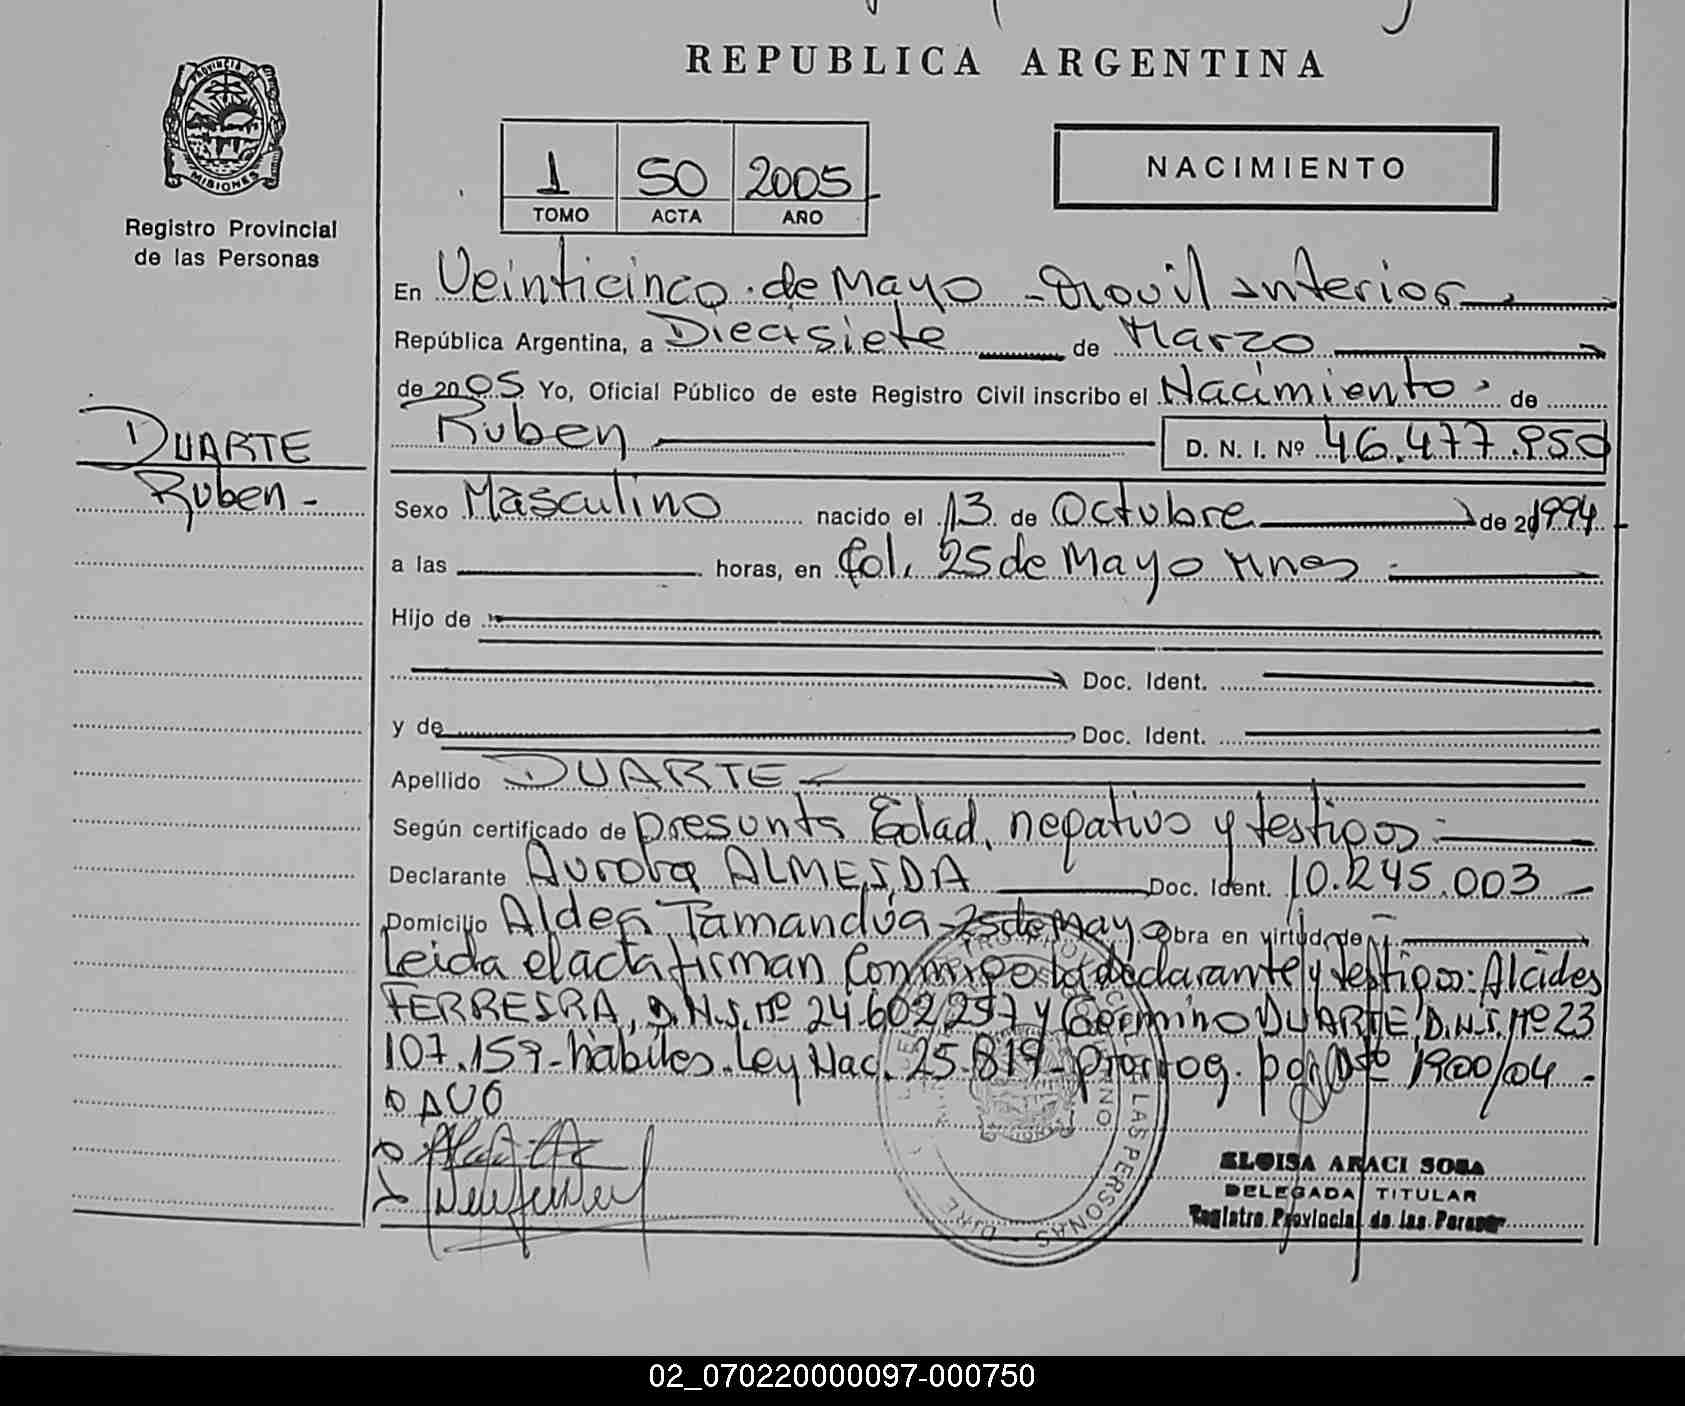 REPUBLICA ARGENTINA
PROVINCIA DE
MISIONES
Registro Provincial
de las Personas
1 50 2005
TOMO ACTA AÑO
NACIMIENTO
En Veinticinco de Mayo - Movil interior
República Argentina, a Diecisiete de Marzo
de 2005 Yo, Oficial Público de este Registro Civil inscribo el Nacimiento de
Ruben D. N. I. Nº 46.477.950
DUARTE
Ruben -
Sexo Masculino nacido el 13 de Octubre de 20 1994
a las horas, en Col. 25 de Mayo Mnes
Hijo de
Doc. Ident.
y de Doc. Ident.
Apellido DUARTE
Según certificado de presunta Edad, negativo y testigos
Declarante Aurora ALMEIDA Doc. Ident. 10.245.003
Domicilio Aldea Tamandúa - 25 de Mayo Obra en virtud de
Leida el acta firman conmigo la declarante y testigos: Alcides
FERREIRA, D.N.I. Nº 24.602.297 y Germino DUARTE, D.N.I. Nº 23
107.159 - habiles. Ley Nac. 25.819 - prorrog. por Dto 1900/04 -
ELOISA ARACI SOSA
DELEGADA TITULAR
Registro Provincial de las Personas
02_070220000097-000750